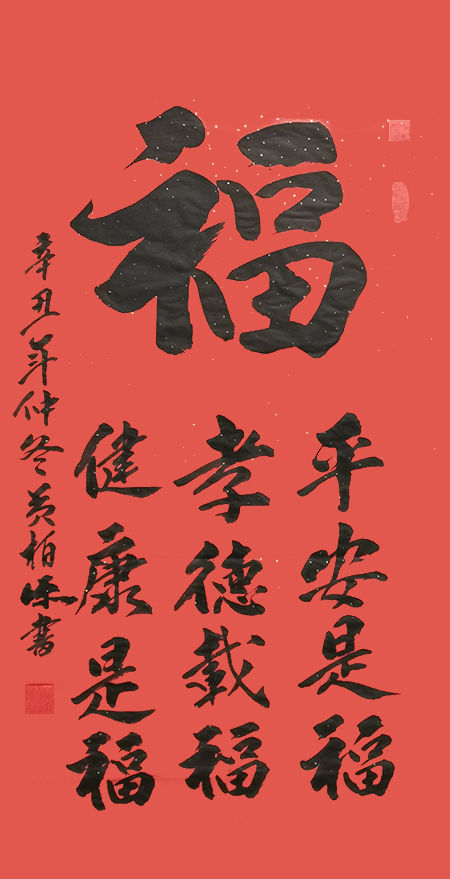 福
平安是福
孝德载福
健康是福
辛丑年仲冬黄柏林书